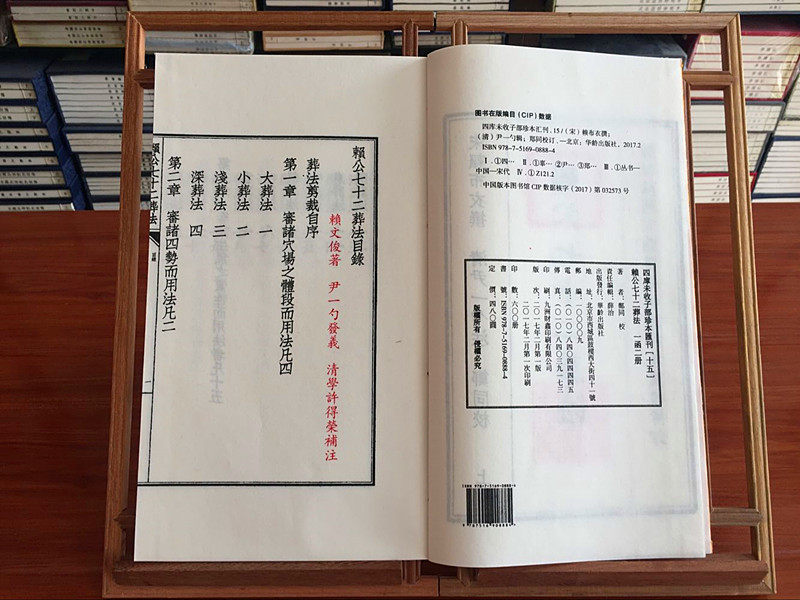 图书在版编目(CIP)数据
四库未收子部珍本汇刊.15/(宋)赖布衣撰;
(清)尹一勺辑;郑同校订.—北京:华龄出版社,2017.2
ISBN 978-7-5169-0888-4
Ⅰ.①四… Ⅱ.①辜…②尹…③郑… Ⅲ.①丛书—
中国—宋代 Ⅳ.①Z121.2
中国版本图书馆 CIP 数据核字(2017)第 032573 号
四庫未收子部珍本匯刊[十五]
賴公七十二葬法 一函二册
著 者:鄭同 校
責任編輯:薛治
出版發行:華齡出版社
地 址:北京市西城區鼓樓西大街四十一號
郵 編:一〇〇〇〇九
電 話:(〇一〇)八四〇四四四四五
傳 真:(〇一〇)八四〇三九一七三
印 刷:九洲財鑫印刷有限公司
版 次:二〇一七年二月第一版
二〇一七年二月第一次印刷
印 數:六〇〇册
書 號:ISBN 978-7-5169-0888-4
定 價:四八〇圓
版權所有 侵權必究
ISBN 978-7-5169-0888-4
9 787516 908884
賴公七十二葬法目錄
賴文俊著 尹一勺發義 清學許得榮補注
葬法剪裁自序
第一章 審諸穴場之體段而用法凡四
大葬法 一
小葬法 二
淺葬法 三
深葬法 四
第二章 審諸四勢而用法凡二
賴公七十二葬法
目錄
一